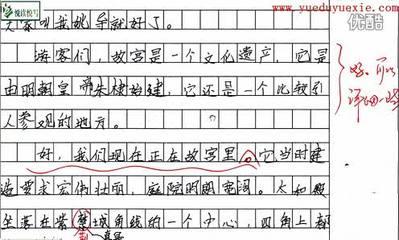 悦读悦写
www.yueduyuexie.com
优酷
叫我姚导就好了。
游客们，故宫是一个文化遗产，它是
由明朝皇帝朱棣始建，它还是一个比较引
人参观的地方。
好，我们现在正在故宫里。它当时建
造要求宏伟壮丽，庭院明朗宽阔。太和殿
坐落在紫禁城角线的一个中心，四角上都
好、可以